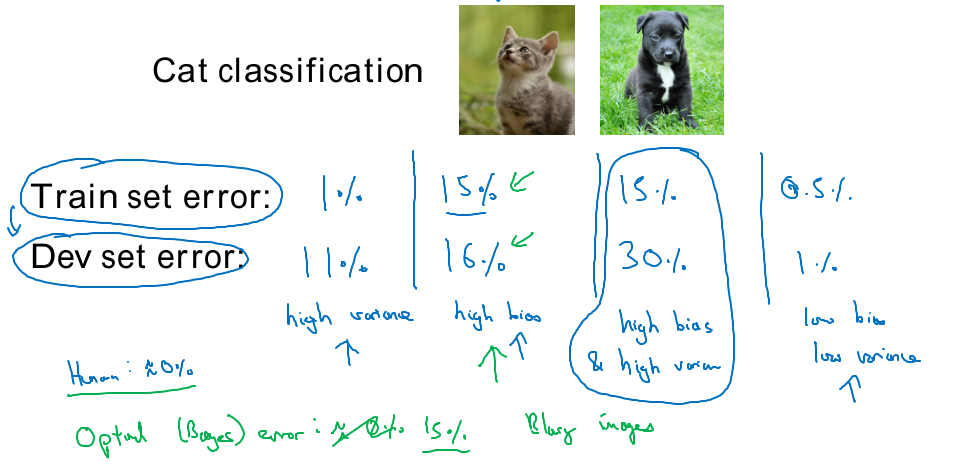 Cat classification
Train set error: 1% 15% 15% 0.5%
Dev set error: 11% 16% 30% 1%
high variance high bias high bias low bias
& high low variance
Human: ≈0%
(Bayes) error: ≈ 0% 15% Blurry images